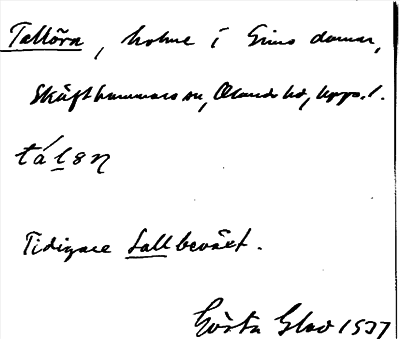 Tallörn, holme i Gimo damm,
Skäfthammars sn, Olands hd, Upps. l.
tálen
Tidigare tallbeväxt.
Gösta Glad 1937